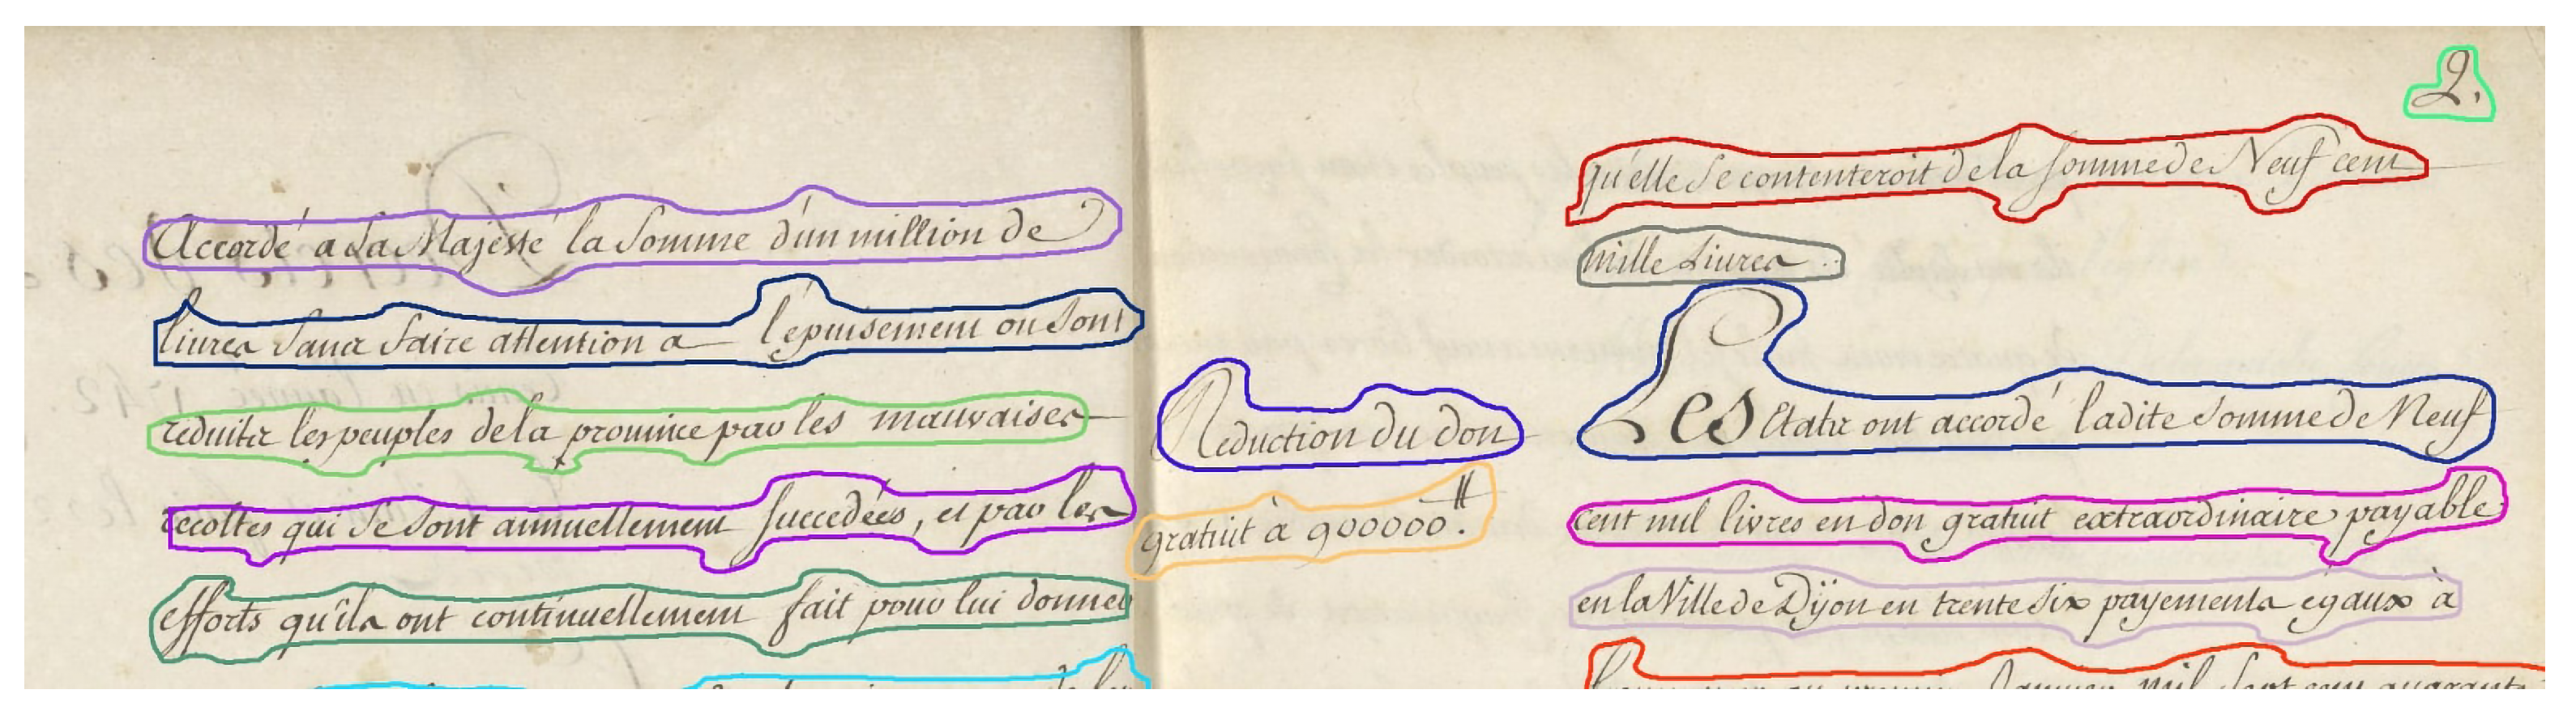 Accordé a Sa Majesté la Somme d'un million de
livres Sans faire attention a l'épuisement ou Sont
reduits les peuples de la province par les mauvaises
recoltes qui Se Sont annuellement succedées, et par les
efforts qu'ils ont continuellement fait pour lui donner
2.
qu'elle Se contenteroit de la somme de Neuf cent
mille Livres ..
Reduction du don
gratuit à 900000.tt
Les Etats ont accordé ladite Somme de Neuf
cent mil livres en don gratuit extraordinaire payable
en la Ville de Dijon en trente Six payements egaux à